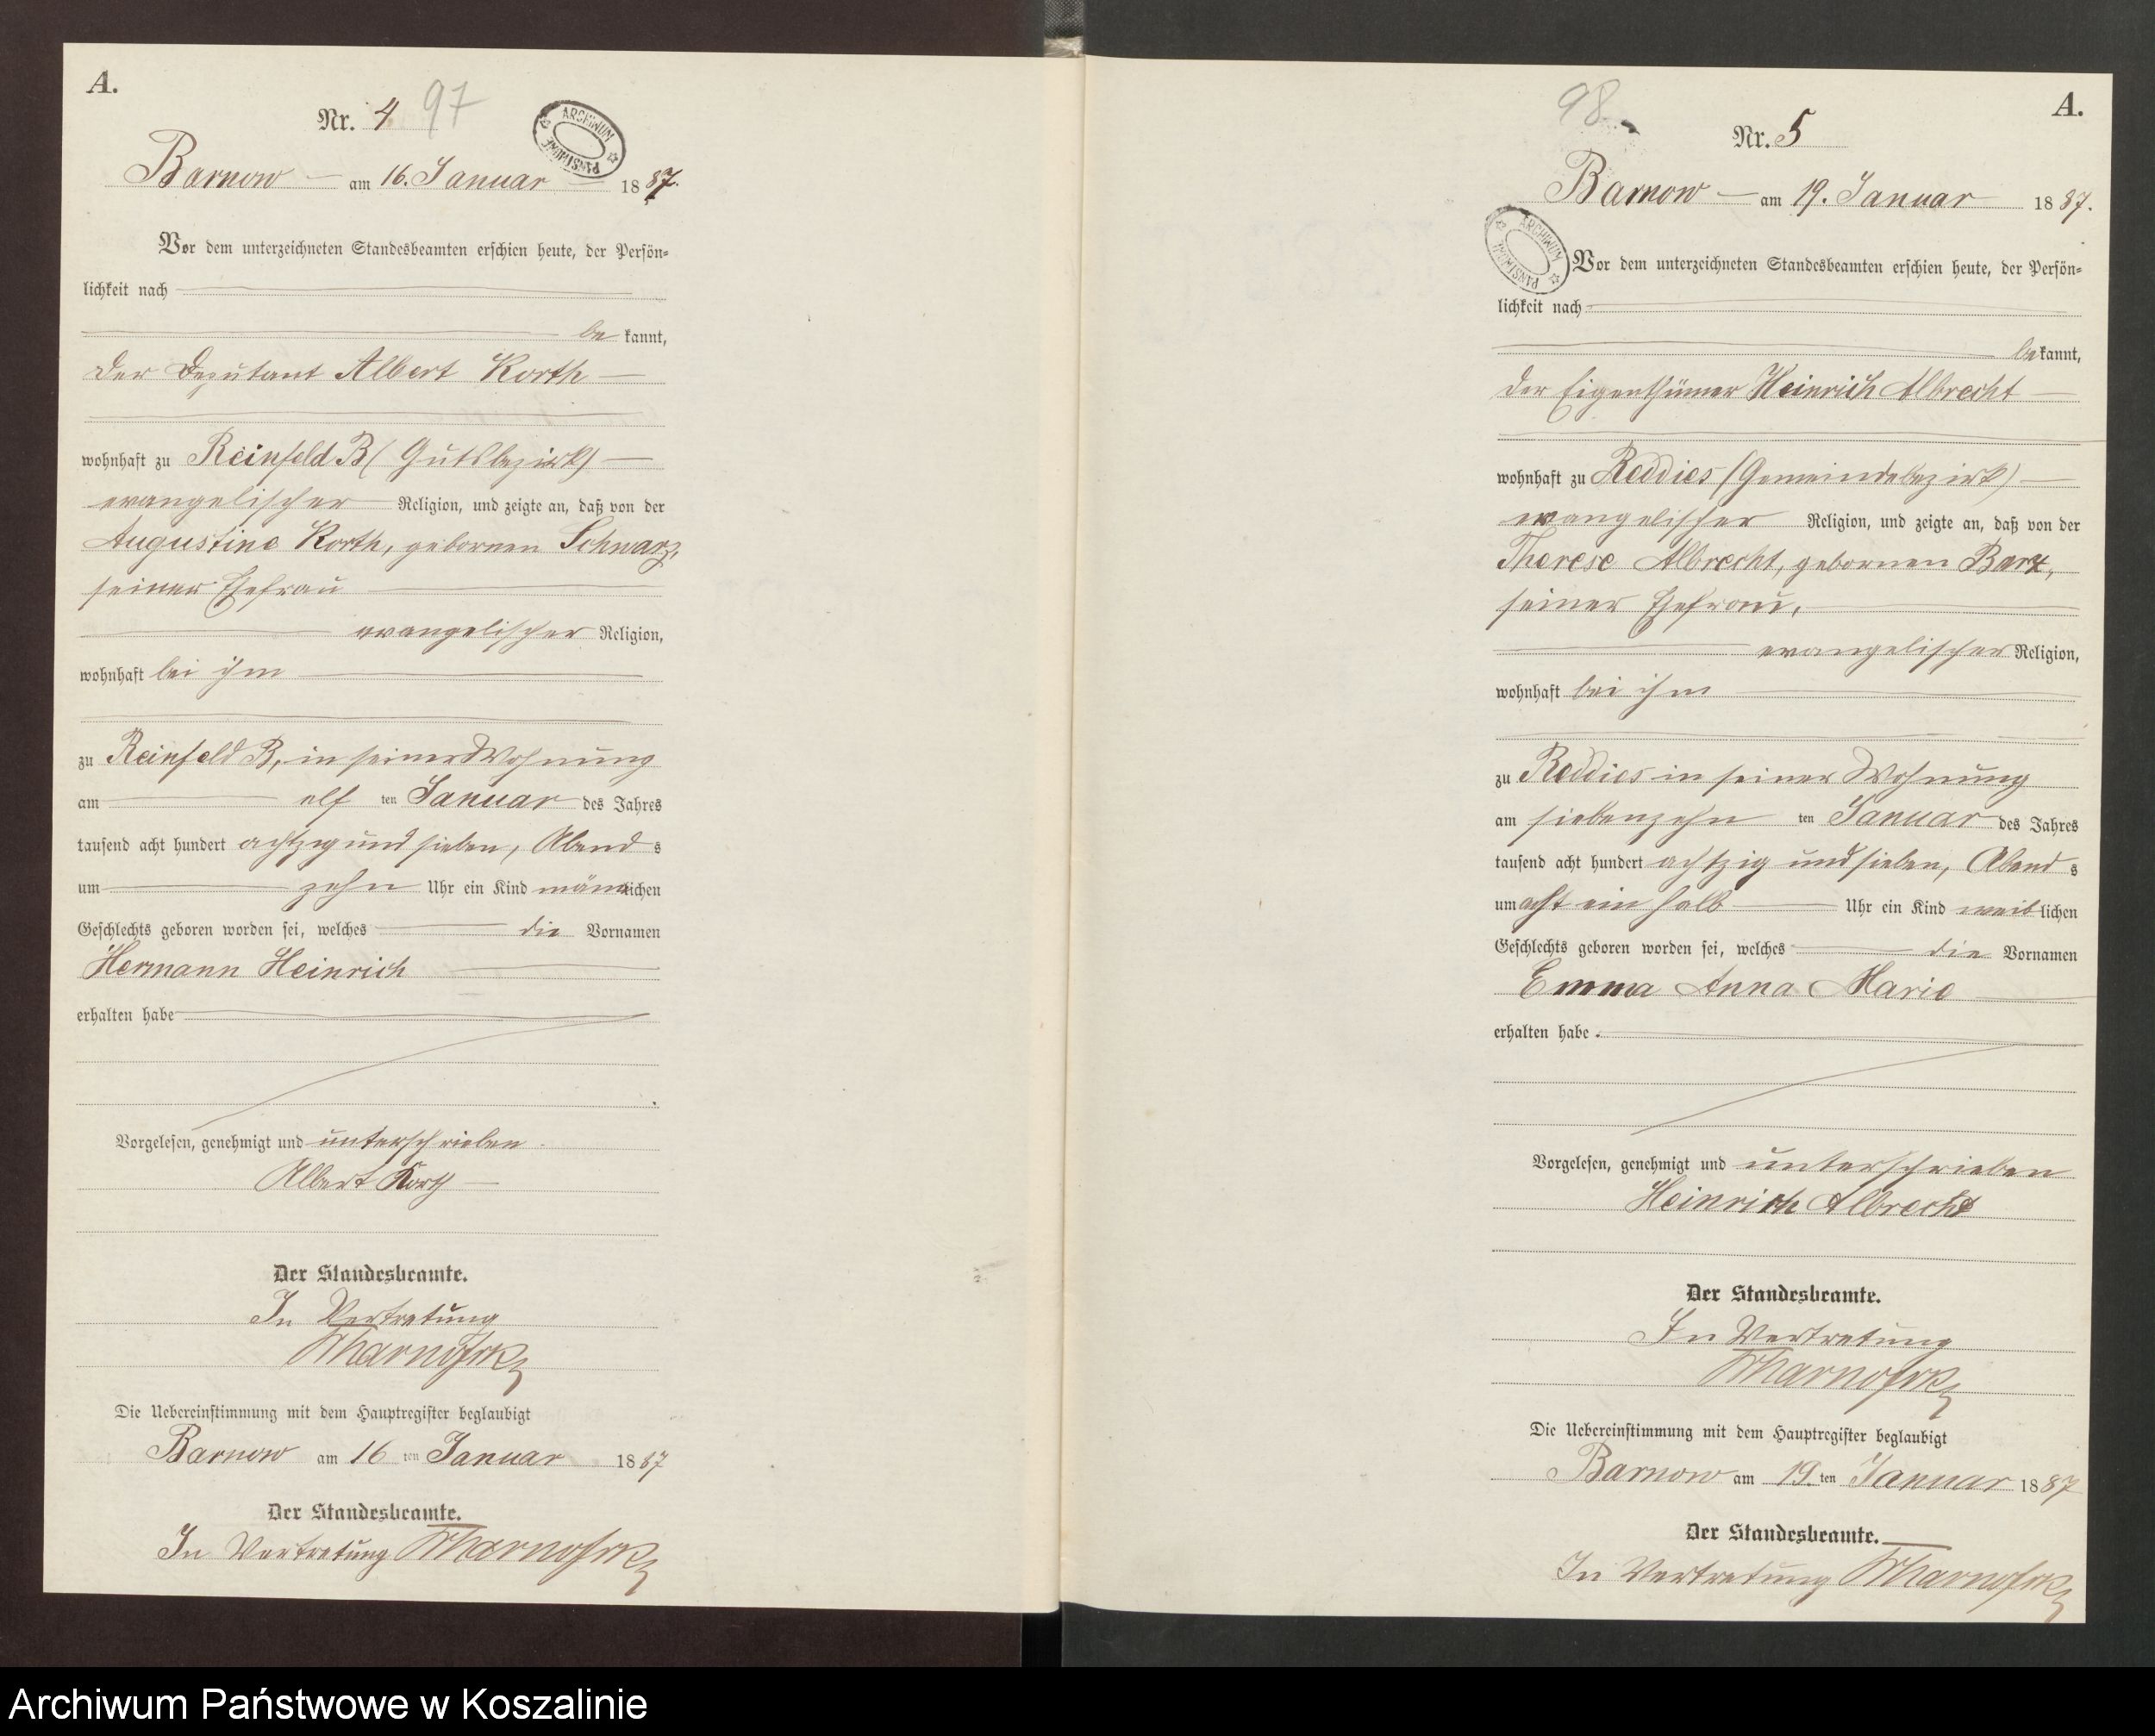 A.
Nr. 4 97
ARCHIWUM PAŃSTWOWE
Barnow am 16. Januar 1887.
Vor dem unterzeichneten Standesbeamten erschien heute, der Persön-
lichkeit nach
be kannt,
der Deputant Albert Korth
wohnhaft zu Reinfeld B (Gutsbezirk)
evangelischer Religion, und zeigte an, daß von der
Augustine Korth, gebornen Schwarz,
seiner Ehefrau
evangelischer Religion,
wohnhaft bei ihm
zu Reinfeld B, in seiner Wohnung
am elf ten Januar des Jahres
tausend acht hundert achtzig und sieben, Abend s
um zehn Uhr ein Kind männlichen
Geschlechts geboren worden sei, welches die Vornamen
Hermann Heinrich
erhalten habe
Vorgelesen, genehmigt und unterschrieben.
Albert Korth
Der Standesbeamte.
In Vertretung
Die Uebereinstimmung mit dem Hauptregister beglaubigt
Barnow am 16 ten Januar 1887
Der Standesbeamte.
In Vertretung
98
A.
Nr. 5
Barnow am 19. Januar 1887.
ARCHIWUM PAŃSTWOWE
Vor dem unterzeichneten Standesbeamten erschien heute, der Persön-
lichkeit nach
bekannt,
der Eigenthümer Heinrich Albrecht
wohnhaft zu Reddies (Gemeindebezirk)
evangelischer Religion, und zeigte an, daß von der
Therese Albrecht, gebornen Barz,
seiner Ehefrau,
evangelischer Religion,
wohnhaft bei ihm
zu Reddies in seiner Wohnung
am siebenzehn ten Januar des Jahres
tausend acht hundert achtzig und sieben, Abend s
um acht ein halb Uhr ein Kind weiblichen
Geschlechts geboren worden sei, welches die Vornamen
Emma Anna Marie
erhalten habe.
Vorgelesen, genehmigt und unterschrieben
Heinrich Albrecht
Der Standesbeamte.
In Vertretung
Die Uebereinstimmung mit dem Hauptregister beglaubigt
Barnow am 19. ten Januar 1887
Der Standesbeamte.
In Vertretung
Archiwum Państwowe w Koszalinie